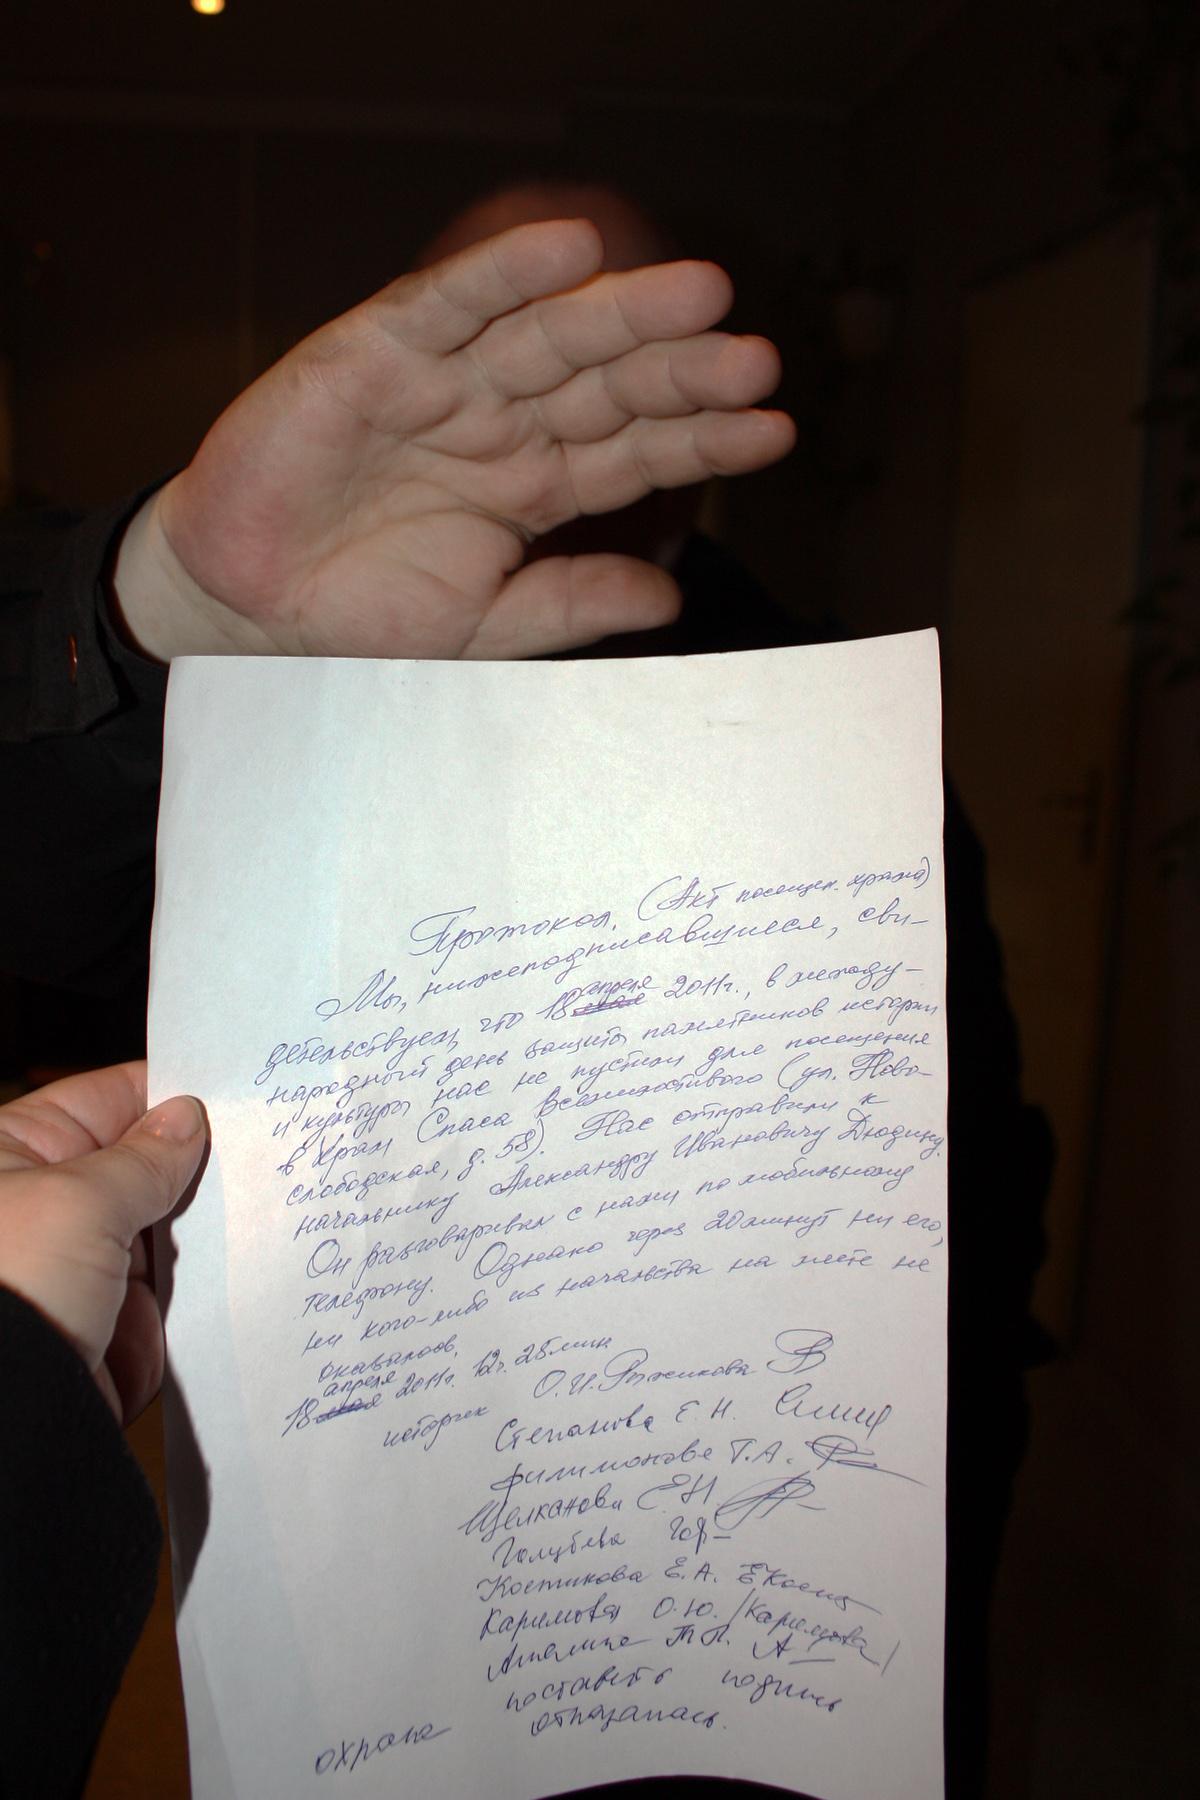 Протокол. (Акт посещен. храма)
Мы, нижеподписавшиеся, сви-
детельствуем, что 18 апреля 2011г., в между-
народный день защиты памятников истории
и культуры нас не пустили для посещения
в Храм Спаса Всемилостивого (ул. Ново-
слободская, д. 58). Нас отправили к
начальнику Александру Ивановичу Дюдину.
Он разговаривал с нами по мобильному
телефону. Однако через 20 минут ни его,
ни кого-либо из начальства на месте не
оказалось.
18 апреля 2011г. 12ч. 25мин
историк О.И. Рыжикова
Степанова Е.Н.
Филимонова Т.А.
Щелканова Е.Н.
Голубева
Костикова Е.А.
Каримова О.Ю. /Каримова/
Т.П.
охрана поставить подпись
отказалась.